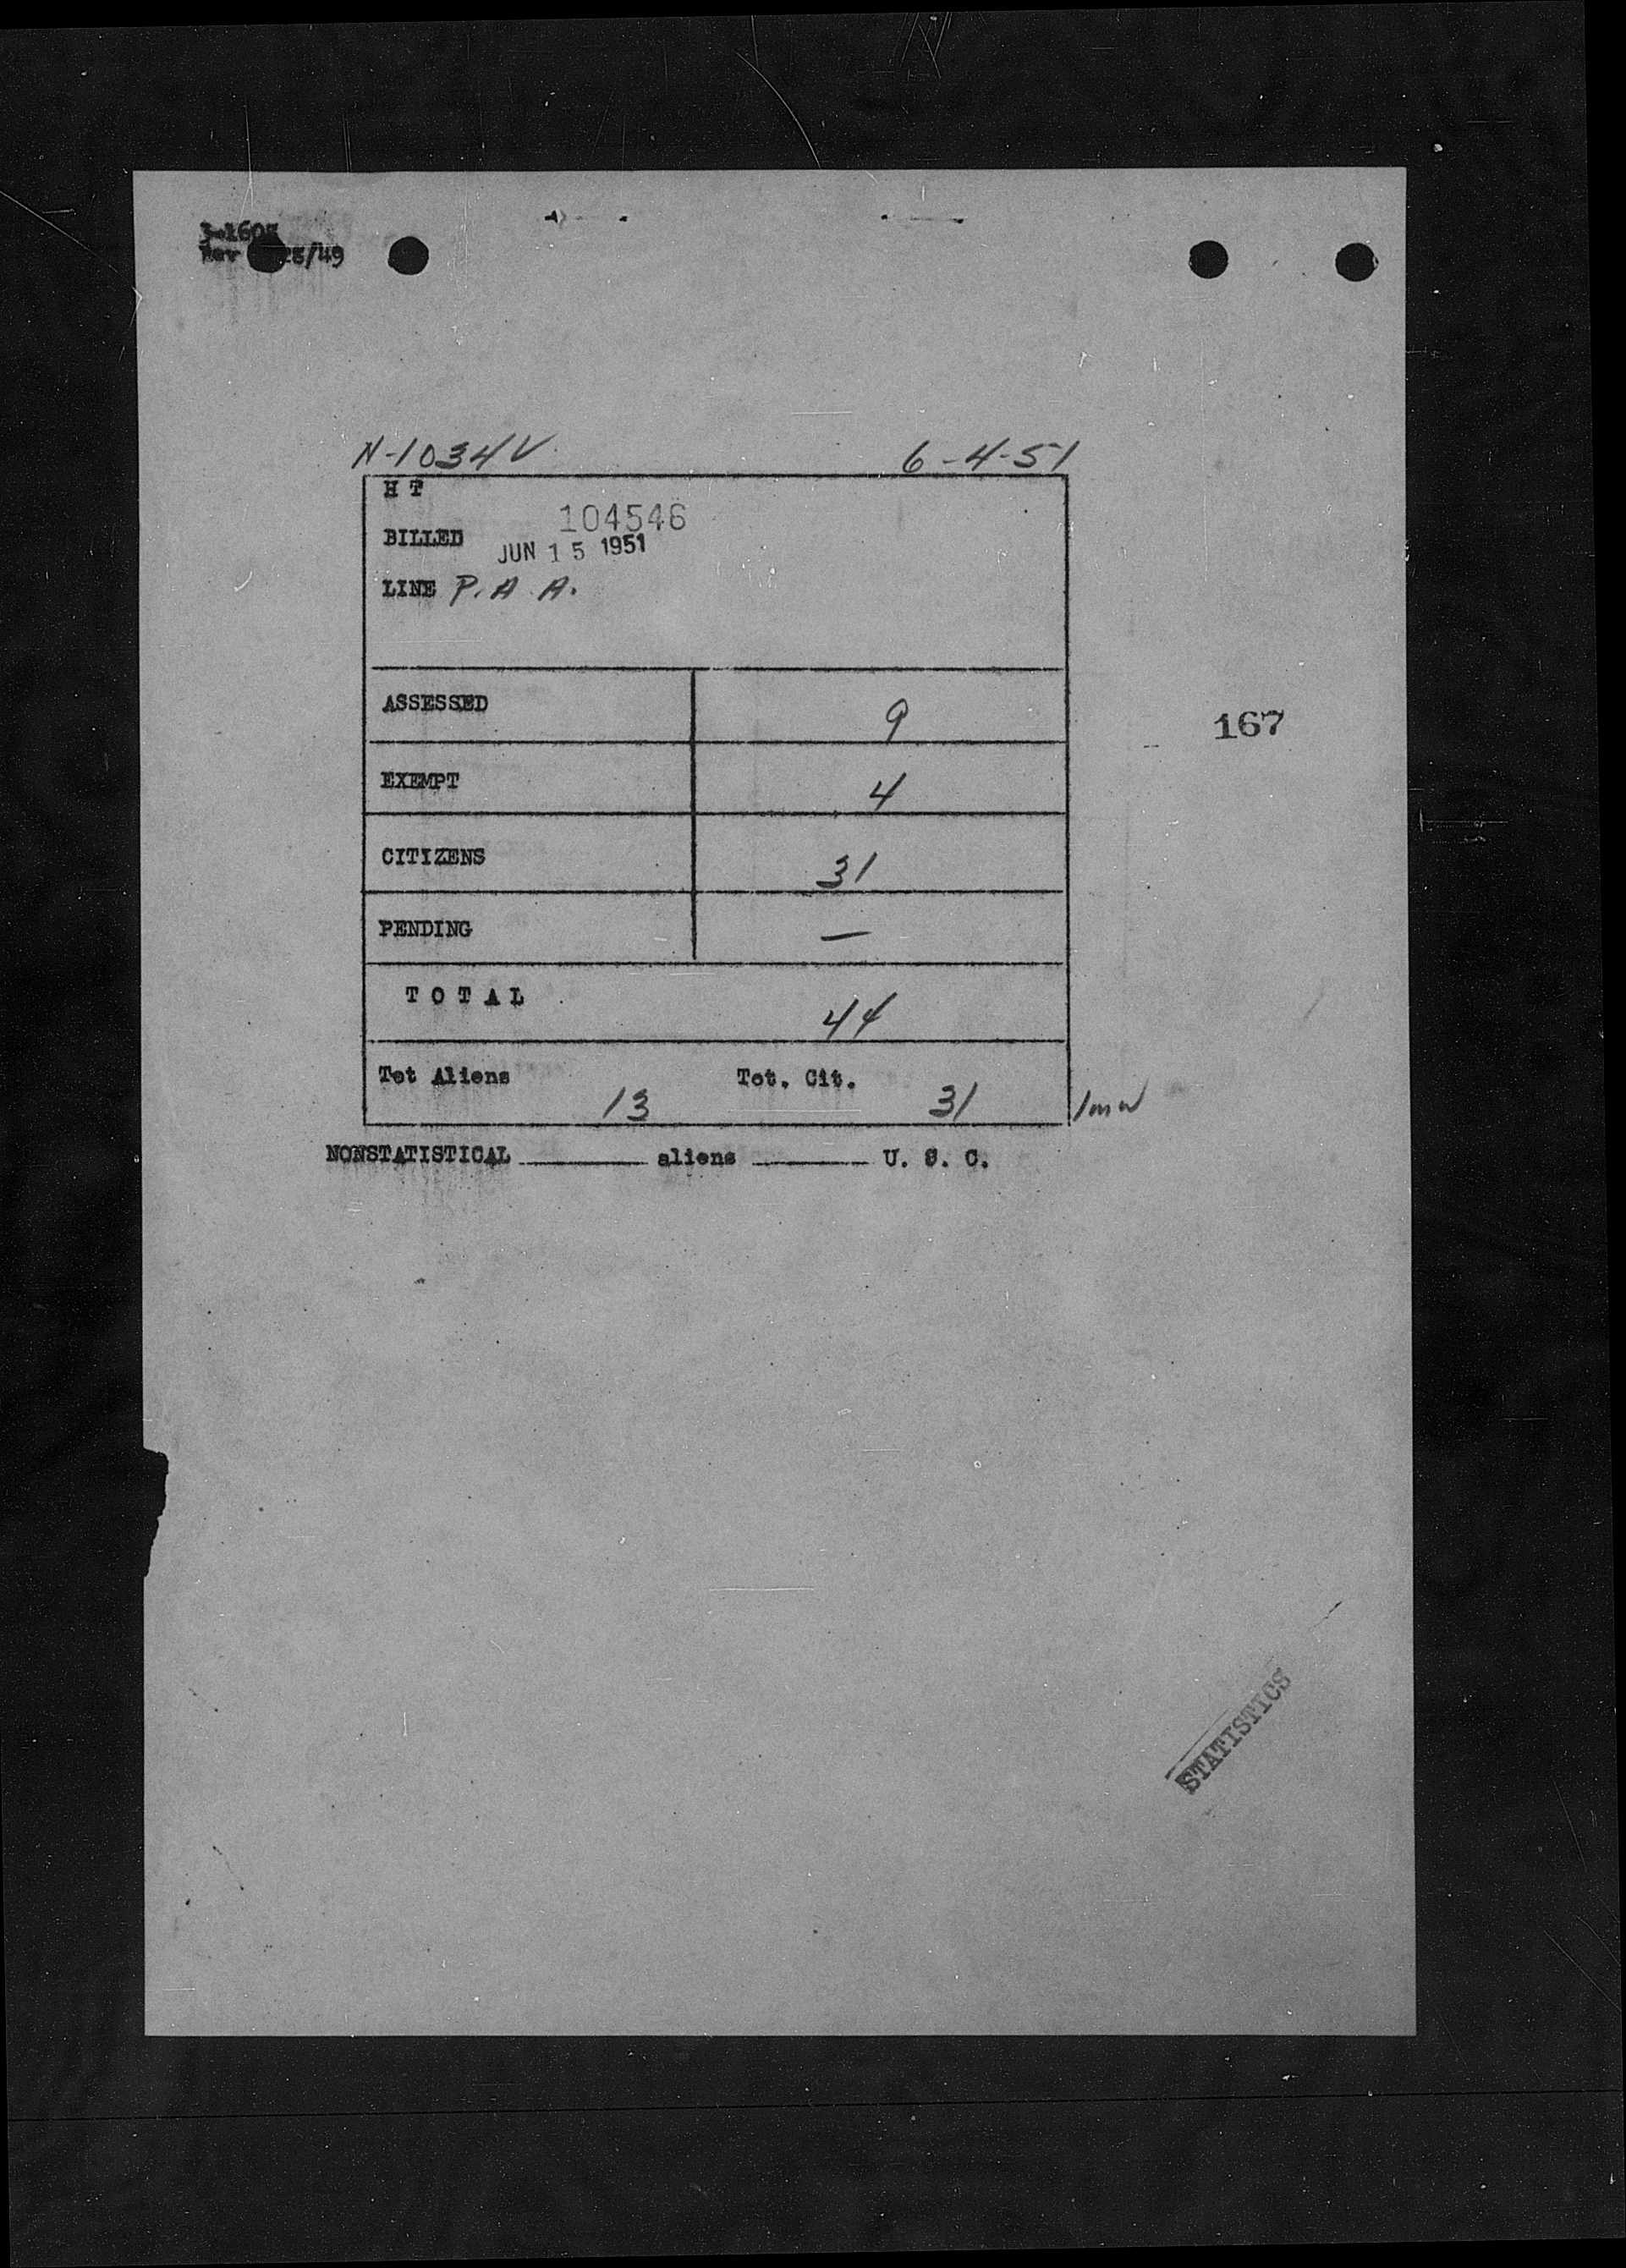 3-1605
Rev 25/49
N-1034V 6-4-51
H T
104546
BILLED JUN 15 1951
LINE P.A.A.
ASSESSED 9
167
EXEMPT 4
CITIZENS 31
PENDING —
T O T A L 44
Tot Aliens 13 Tot. Cit. 31
NONSTATISTICAL ________ aliens ________ U. S. C.
STATISTICS